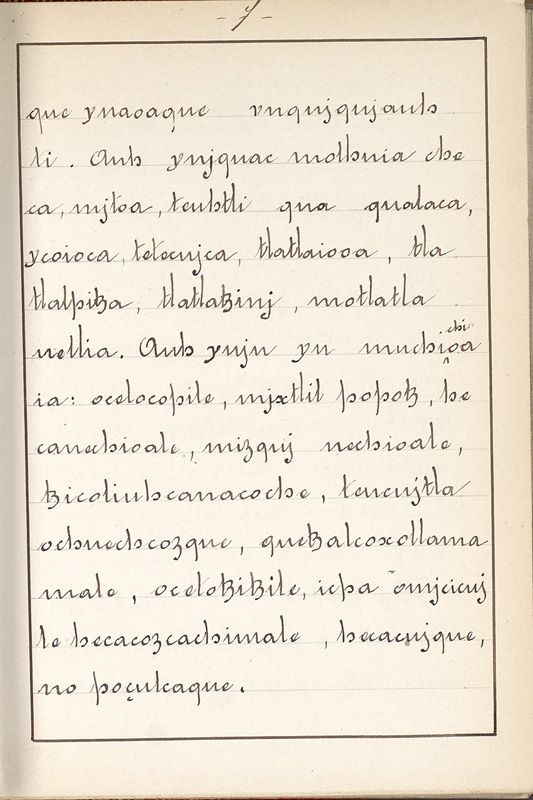 - 7 -
que ynaoaque vnqujqujauh
ti. Auh ynjquac molhuia ehe
ca, mjtoa, teuhtli qua qualaca,
ycoioca, tetecujca, tlatlaiooa, tla
tlalpitza, tlatlatzinj, motlatla
nellia. Auh ynjn yn muchichioa
ia: ocelocopile, mjxtlil popotz, he
canechioale, mizquj nechioale,
tzicoliuhcanacoche, teucujtla
ochnechcozque, quetzalcoxollama
male, ocelotzitzile, icpa omjcicuj
le hecacozcachimale, hecacujque,
no poçulcaque.